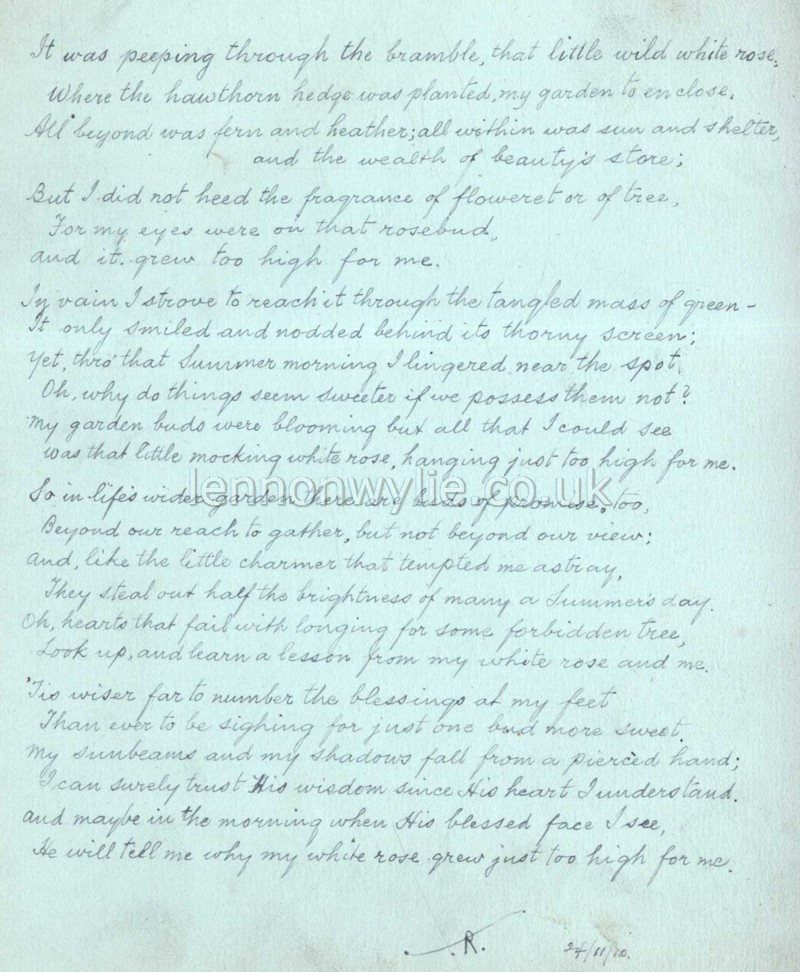 It was peeping through the bramble, that little wild white rose,
Where the hawthorn hedge was planted, my garden to enclose.
All beyond was fern and heather; all within was sun and shelter,
and the wealth of beauty's store;
But I did not heed the fragrance of floweret or of tree,
For my eyes were on that rosebud,
and it grew too high for me.
In vain I strove to reach it through the tangled mass of green -
It only smiled and nodded behind its thorny screen;
Yet, thro' that Summer morning I lingered near the spot.
Oh, why do things seem sweeter if we possess them not?
My garden buds were blooming but all that I could see
was that little mocking white rose, hanging just too high for me.
lennonwylie.co.uk
So in life's wider garden there are buds of promise, too,
Beyond our reach to gather, but not beyond our view;
And, like the little charmer that tempted me astray,
They steal out half the brightness of many a Summer's day.
Oh, hearts that fail with longing for some forbidden tree,
Look up, and learn a lesson from my white rose and me.
'Tis wiser far to number the blessings at my feet
Than ever to be sighing for just one bud more sweet.
My sunbeams and my shadows fall from a pierced hand;
I can surely trust His wisdom since His heart I understand.
and maybe in the morning when His blessed face I see,
He will tell me why my white rose grew just too high for me.
R. 24/11/10.